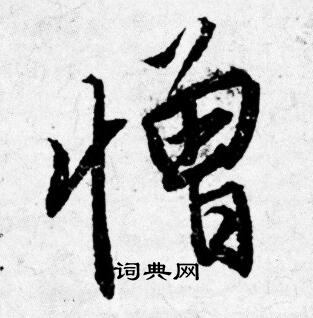 憎
词典网